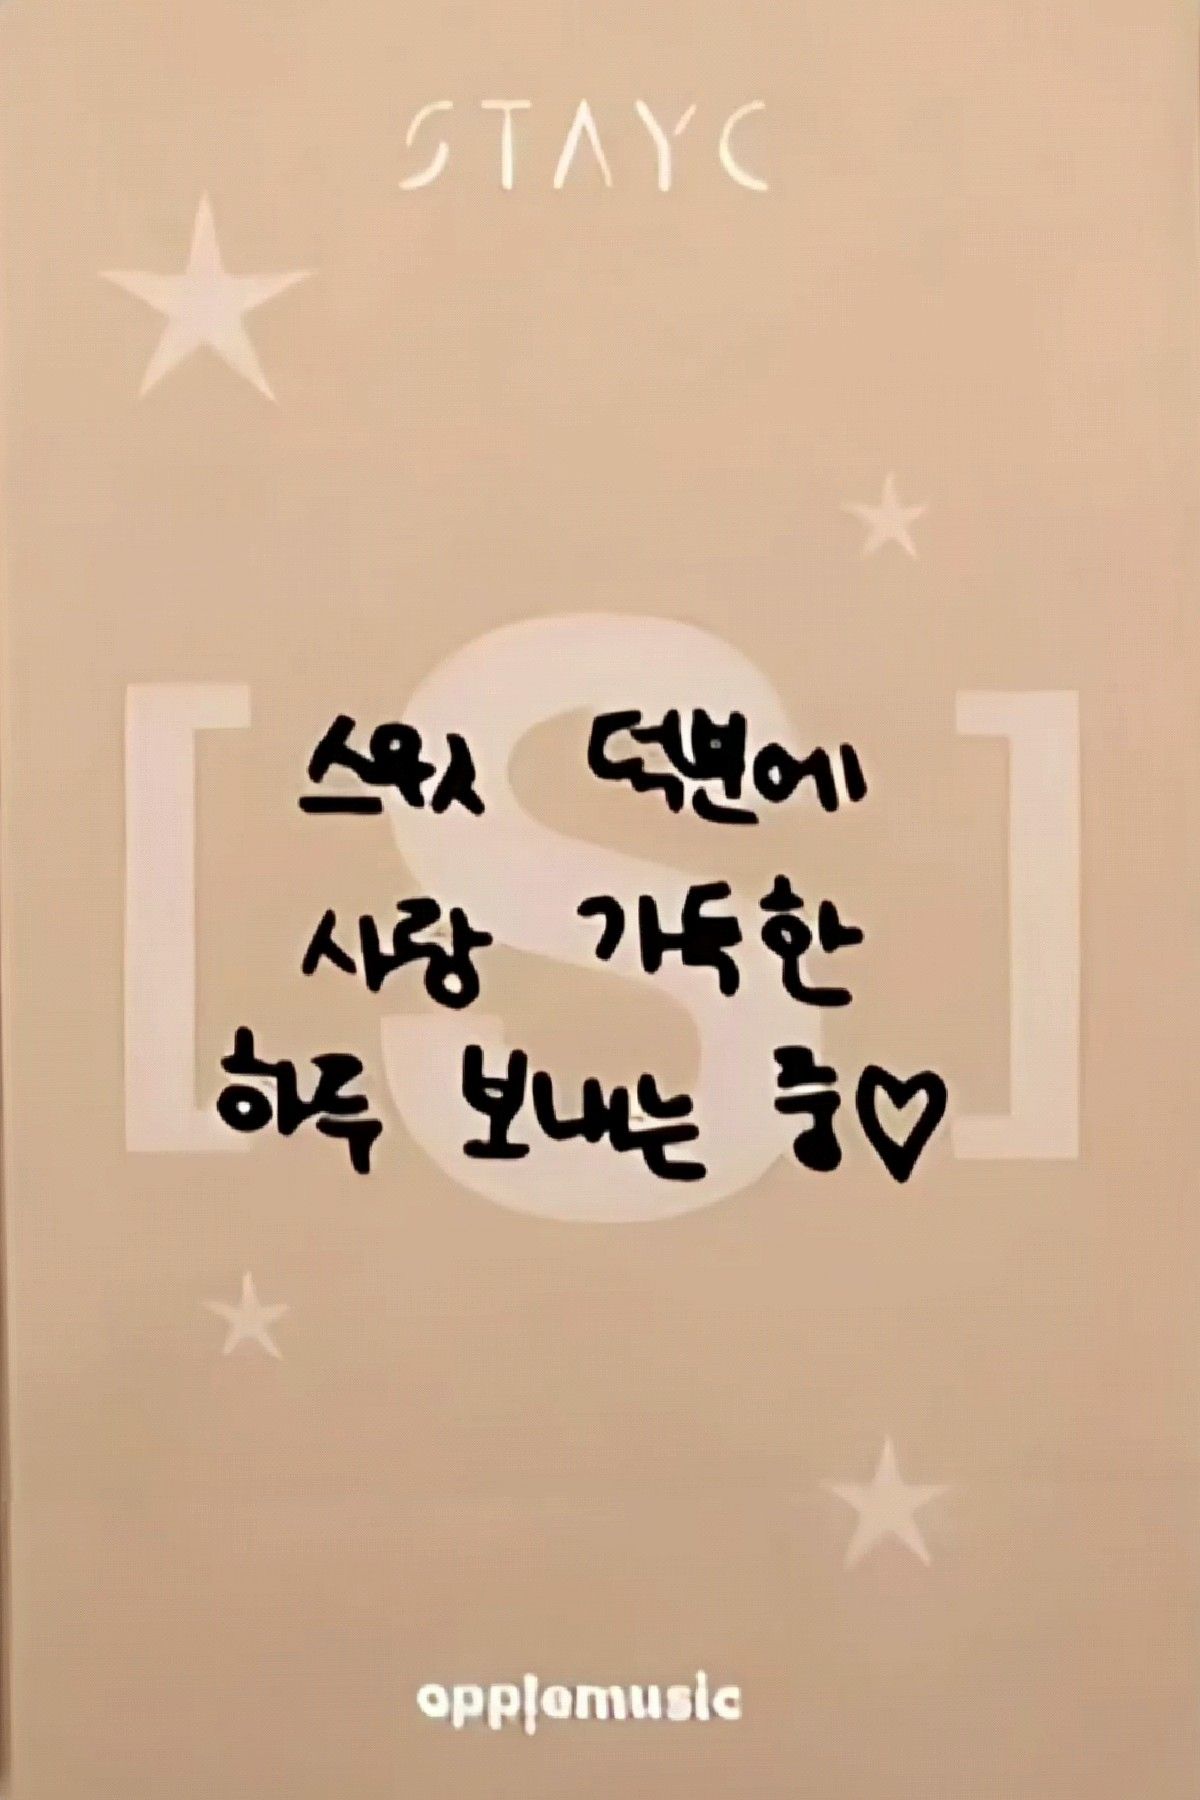 STAYC
스윗 덕분에
사랑 가득한
하루 보내는 중♡
[S]
applemusic